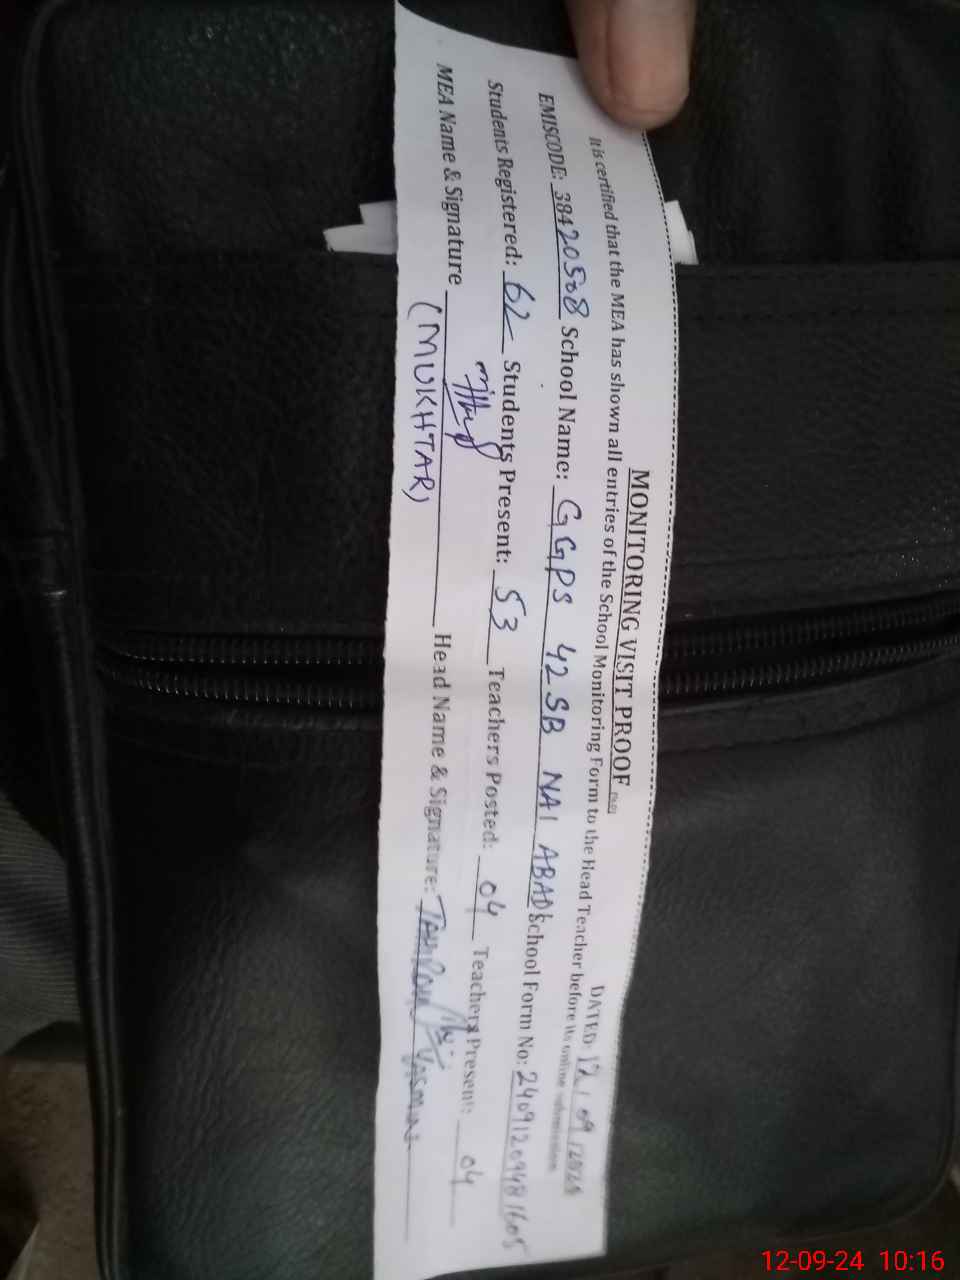 MONITORING VISIT PROOF
DATED: 12/09/2024
It is certified that the MEA has shown all entries of the School Monitoring Form to the Head Teacher before its online submission
EMISCODE: 38420508 School Name: GGPS 42 SB NAI ABAD School Form No: 24091209481605
Students Registered: 62 Students Present: 53 Teachers Posted: 04 Teachers Present: 04
MEA Name & Signature Head Name & Signature:
(MUKHTAR)
12-09-24 10:16